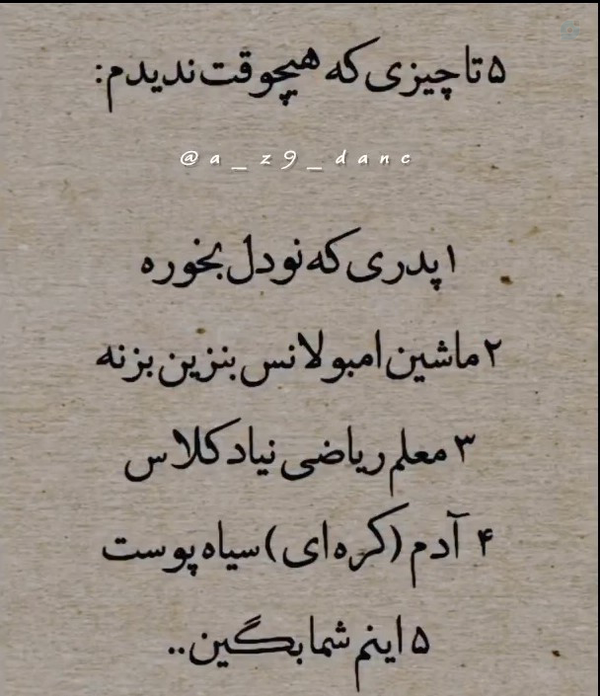 ۵ تا چیزی که هیچوقت ندیدم:
@a_z9_danc
۱ پدری که نودل بخوره
۲ ماشین امبولانس بنزین بزنه
۳ معلم ریاضی نیاد کلاس
۴ آدم (کره ای) سیاه پوست
۵ اینم شما بگین..